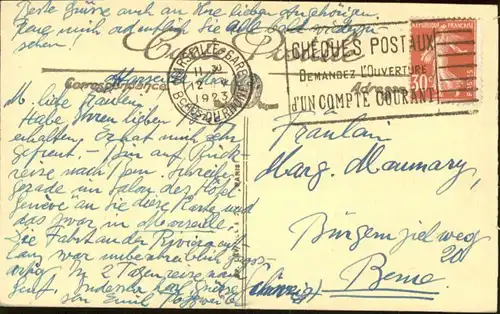 Beste Grüsse auch an Ihre lieben Angehörigen.
Freue mich ordentlich Sie alle bald wiederzu-
sehen!
Carte Postale
Correspondance
Adresse
MARSEILLE-GARE
11 30
12
1923
BCHES-DU-RHONE
CHÈQUES POSTAUX
DEMANDEZ L'OUVERTURE
D'UN COMPTE COURANT
RÉPUBLIQUE FRANÇAISE
30c
Marseille
M. liebe Fräulein,
Habe Ihren lieben
erhalten. Er hat mich sehr
gefreut. – Bin auf Rück-
reise nach Bern. Schreibe
gerade im Salon des Hôtel
Genève an Sie diese Karte und
das zwar in Marseille.
Die Fahrt an der Riviera ent-
lang war unbeschreiblich gross-
artig. In 2 Tagen reise nach
Genf. Indessen herzl. Grüsse
von Emil
PARIS
Fräulein
Marg. Maumary
Bürgerzielweg
20
Berne
(Schweiz)